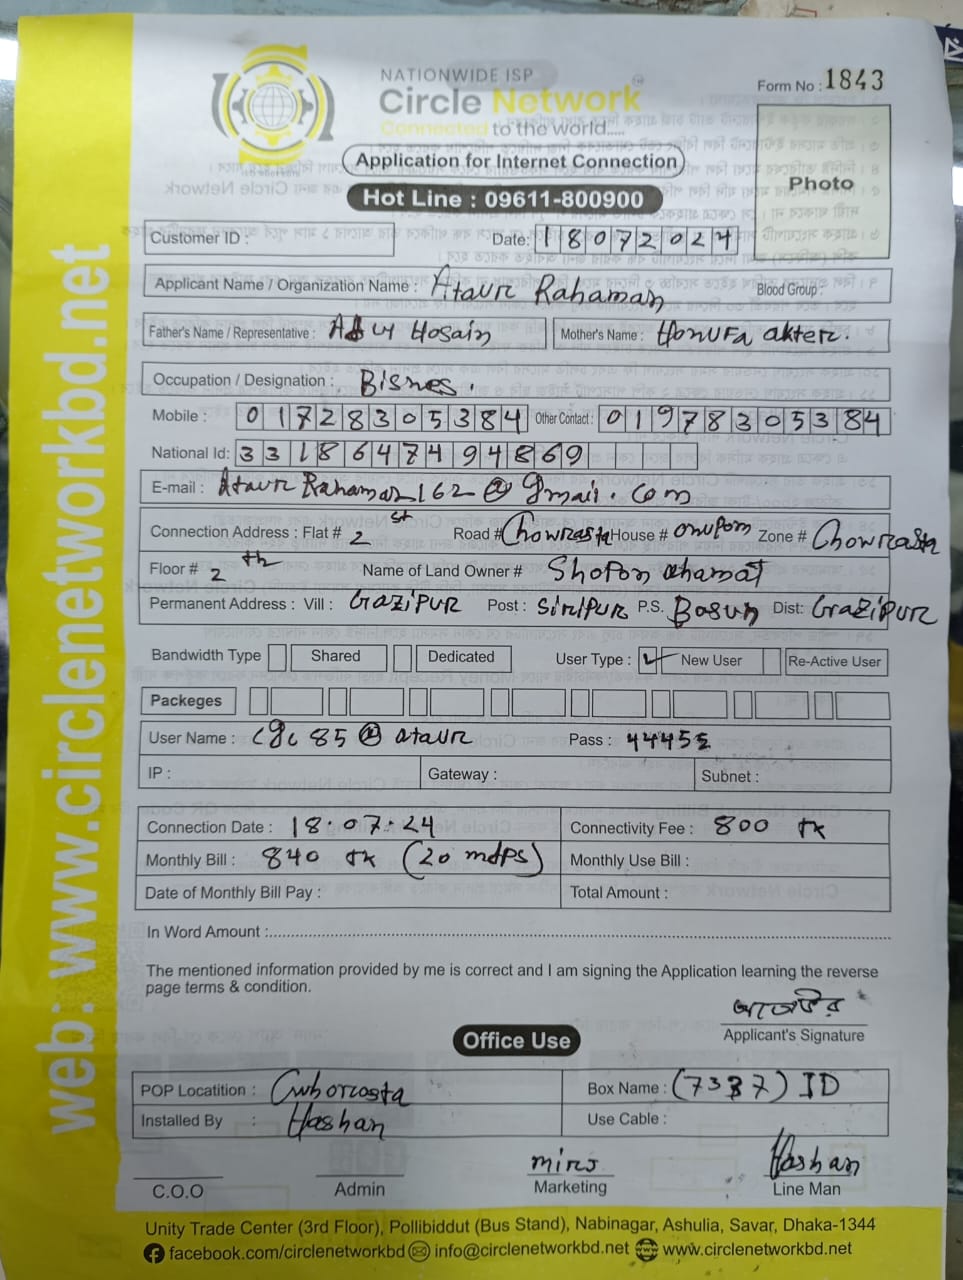 NATIONWIDE ISP
Circle Network
Connected to the world.....
Form No : 1843
Photo
Application for Internet Connection
Hot Line : 09611-800900
Customer ID :
Date: 18072024
Applicant Name / Organization Name : Ataur Rahaman
Blood Group :
Father's Name / Representative : Hosain
Mother's Name : Honufa akter.
Occupation / Designation : Bisnes.
Mobile : 01728305384 Other Contact : 01978305384
National Id: 3318647494869
E-mail : AtaurRahaman162@gmail.com
Connection Address : Flat # 2st Road # Chowrasta House # onupom Zone # Chowrasta
Floor # 2th Name of Land Owner # Shopon ahamat
Permanent Address : Vill : Gazipur Post : Siripur P.S. Dist: Gazipur
Bandwidth Type Shared Dedicated User Type : ✓ New User Re-Active User
Packeges
User Name : cgc85@ataur Pass : 44455
IP : Gateway : Subnet :
Connection Date : 18.07.24 Connectivity Fee : 800 tk
Monthly Bill : 840 tk (20 mdps) Monthly Use Bill :
Date of Monthly Bill Pay : Total Amount :
In Word Amount :
The mentioned information provided by me is correct and I am signing the Application learning the reverse
page terms & condition.
Applicant's Signature
Office Use
POP Locatition : Box Name : (7337) ID
Installed By : Hashan Use Cable :
Hashan
C.O.O Admin Marketing Line Man
Unity Trade Center (3rd Floor), Pollibiddut (Bus Stand), Nabinagar, Ashulia, Savar, Dhaka-1344
facebook.com/circlenetworkbd info@circlenetworkbd.net www.circlenetworkbd.net
web: www.circlenetworkbd.net